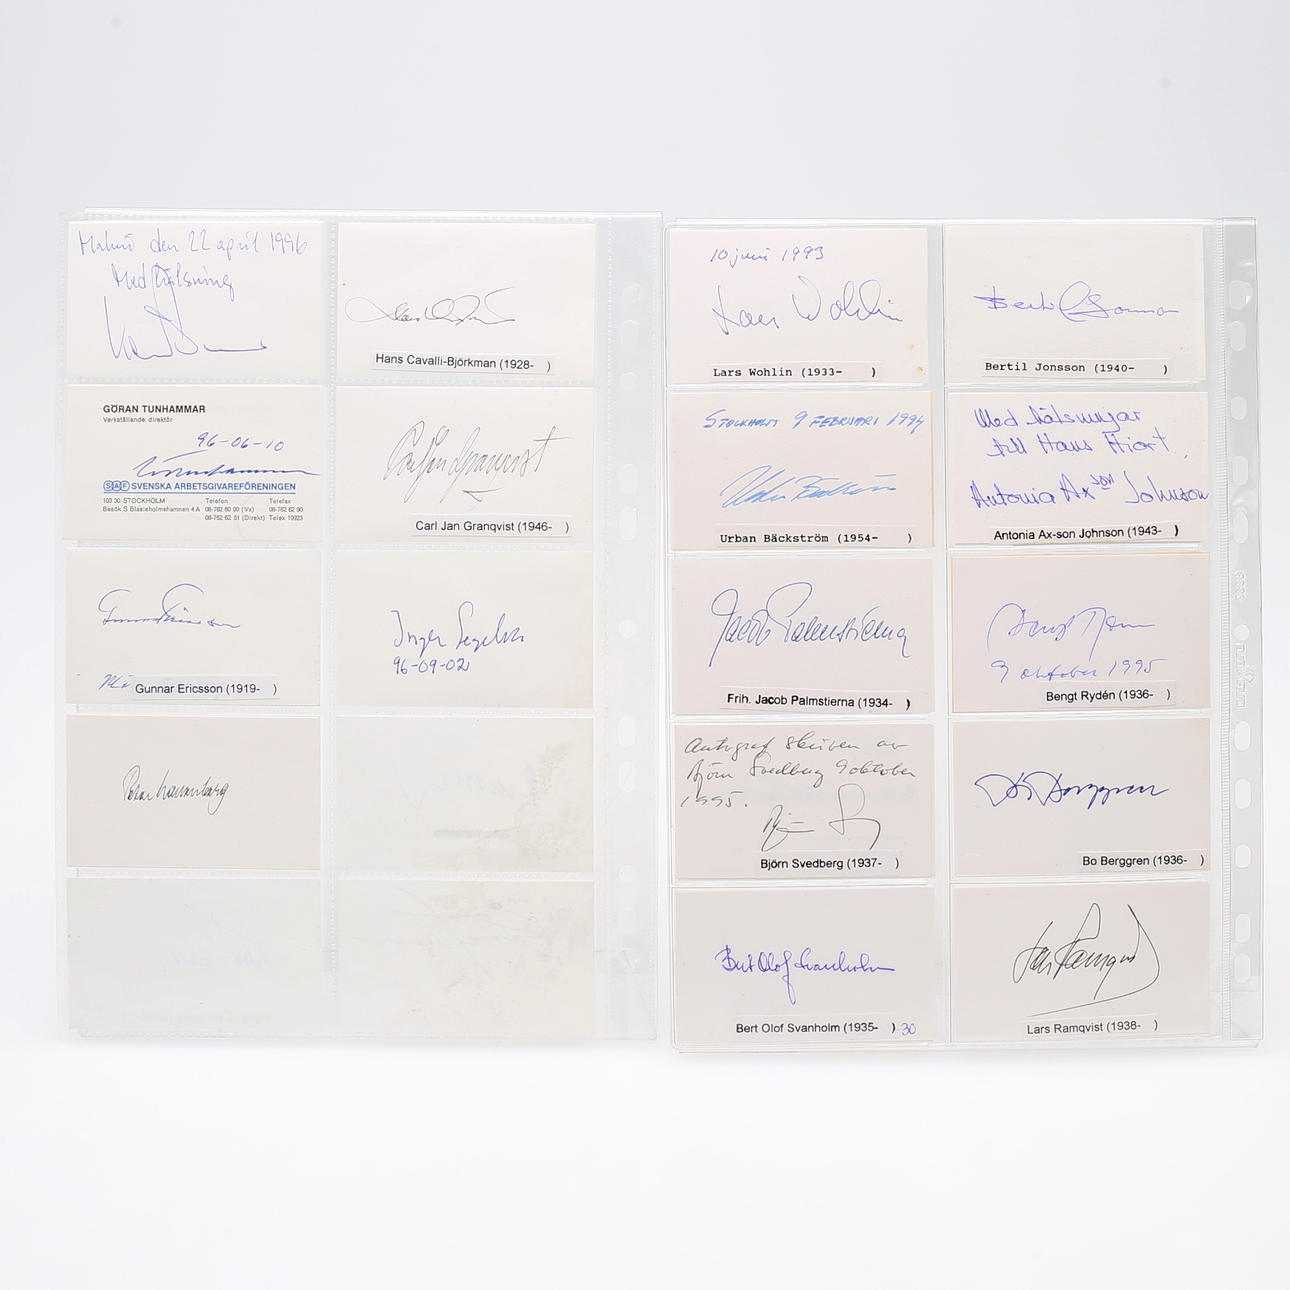 Malmö den 22 april 1996
Med hälsning
Hans Cavalli-Björkman (1928- )
GÖRAN TUNHAMMAR
Verkställande direktör
96-06-10
SAF SVENSKA ARBETSGIVAREFÖRENINGEN
103 30 STOCKHOLM Telefon Telefax
Besök S Blasieholmshamnen 4A 08-762 60 00 (Vx) 08-762 62 90
08-762 62 01 (Direkt) Telex 19923
Carl Jan Granqvist
Carl Jan Granqvist (1946- )
Gunnar Ericsson (1919- )
Inger
96-09-02
10 juni 1993
Lars Wohlin
Lars Wohlin (1933- )
Bertil Jonsson (1940- )
STOCKHOLM 9 FEBRUARI 1994
Urban Bäckström (1954- )
Med hälsningar
till Hans Hiort
Antonia Ax:son Johnson
Antonia Ax-son Johnson (1943- )
Jacob Palmstierna
Frih. Jacob Palmstierna (1934- )
Bengt Rydén
9 oktober 1995
Bengt Rydén (1936- )
Autograf skriven av
Björn Svedberg 9 oktober
1995.
Björn Svedberg (1937- )
Bo Berggren
Bo Berggren (1936- )
Bert Olof Svanholm
Bert Olof Svanholm (1935- ) 30
Lars Ramqvist
Lars Ramqvist (1938- )